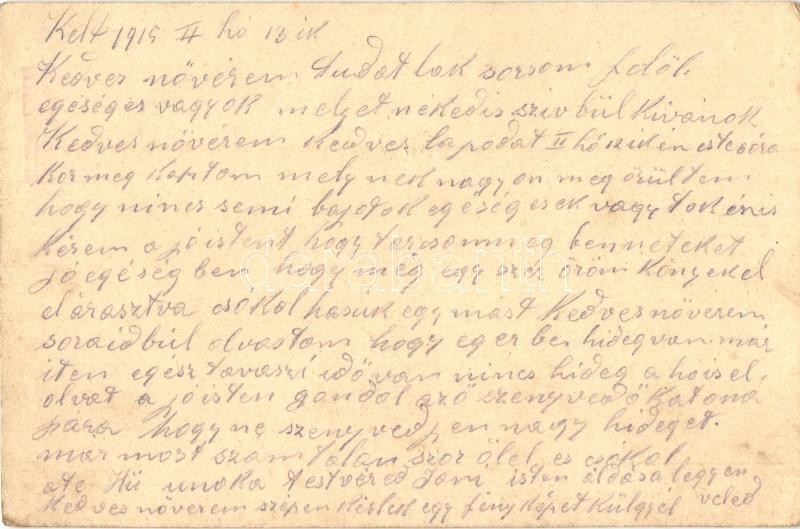 Kelt 1915 II hó 13 ik
Kedves növérem tudatlak sorsom felöl.
egeséges vagyok melyet nékedis szivbül kivánok
Kedves növérem kedves lapodat II hó 12 ikén este 6 óra
kor meg kaptom melynek nagyon meg örültem
hogy nincs semi bajotok egeségesek vagytok énis
kérem a jóistent hogy tarcsonmeg benneteket
jóegéségben hogy még egyszer öröm könyekel
elárasztva csókolhasuk egymást Kedves növérem
soraidbúl olvastam hogy egerben hidegvan. már
iten egész tavaszi idővan nincs hideg a hóisel,
olvat a jóisten gondol azö szenyvedö katona
jára hogy ne szenyvedjen nagy hideget.
már most szamtalanszor ölel es csókol
ate Hü unoka testvéred Jani isten áldása legyen
veled
Kedves növérem szépen kérlek egy fényképet külgyél
databanth